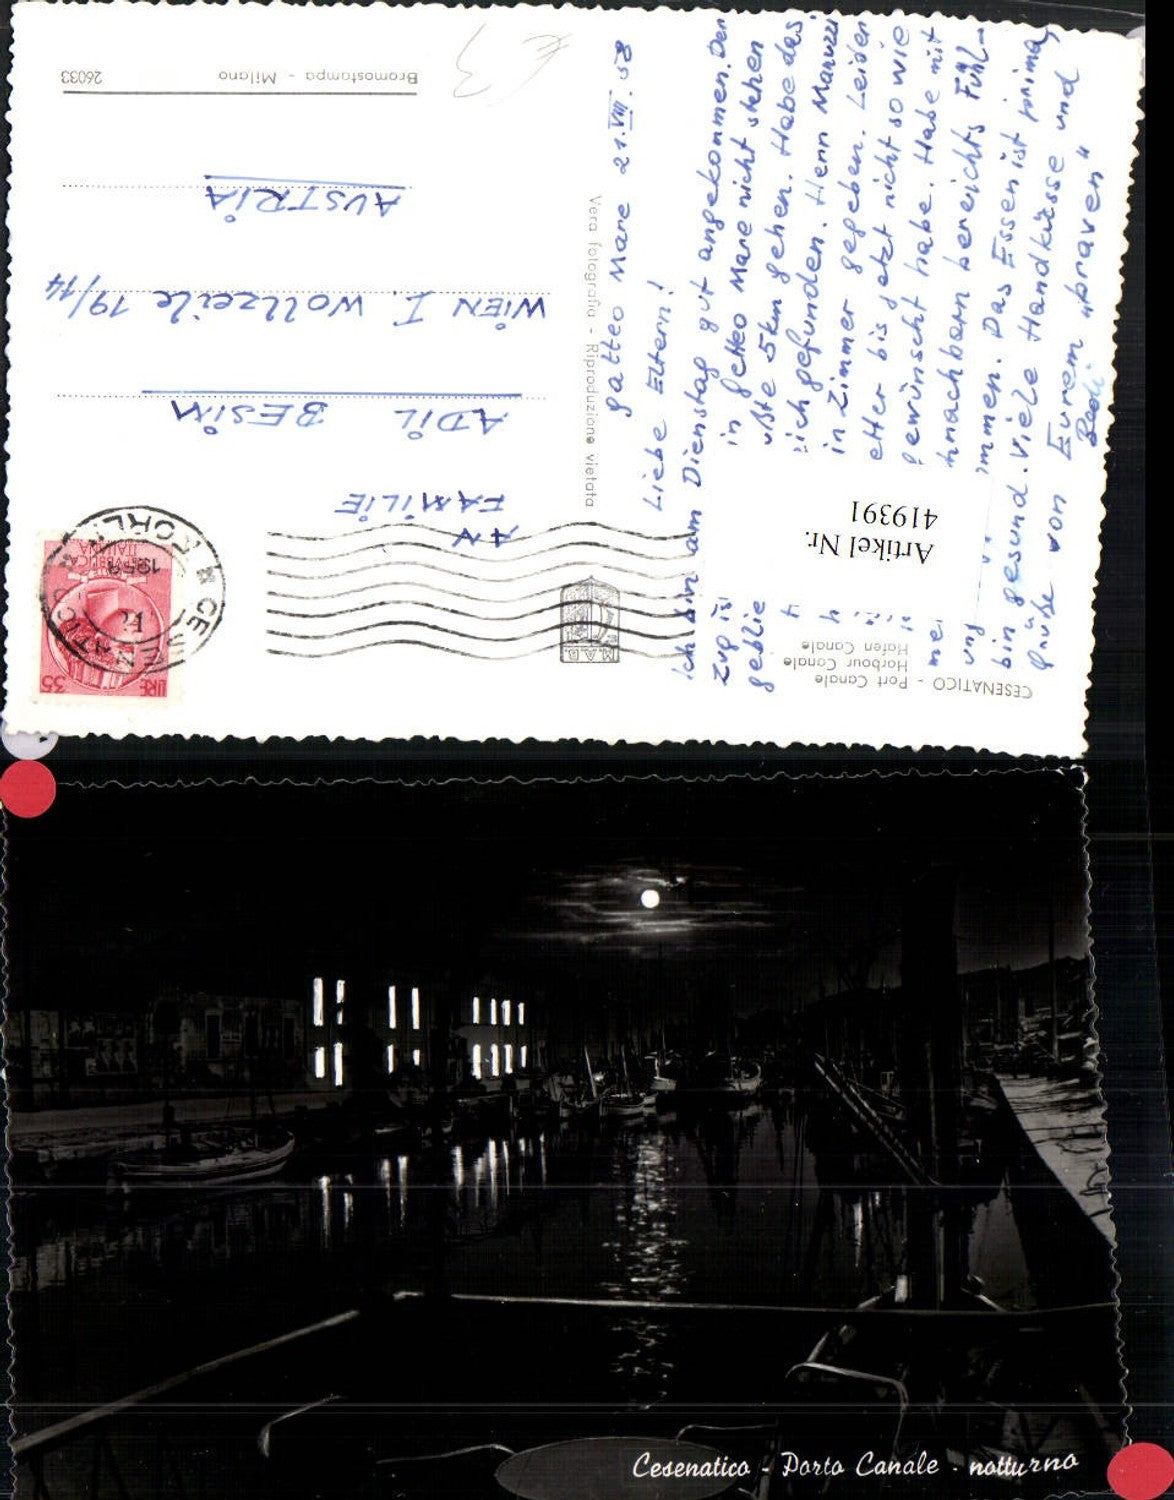 CESENATICO - Port Canale
Harbour Canale
Hafen Canale
Gatteo Mare 21.VIII.58
Liebe Eltern!
Ich bin am Dienstag gut angekommen. Der
Zug is
in Gatteo Mare nicht stehen
geblie
ußte 5km gehen. Habe das
ich gefunden. Herr Maruzzi
in Zimmer gegeben. Leider
etter bis jetzt nicht so wie
gewünscht habe. Habe mit
hnachbarn bereichts Fühl-
ung
mmen. Das Essen ist prima,
bin gesund. Viele Handküsse und
Grüße von Eurem "braven"
Bedi
Artikel Nr.
419391
Vera fotografia - Riproduzione vietata
M.A.B.
LIRE 35
REPUBBLICA
ITALIANA
1958
AN
FAMILIE
ADIL BESIM
WIEN I. Wollzeile 19/14
AUSTRIA
Bromostampa - Milano
26033
€ 3
Cesenatico - Porto Canale - notturno